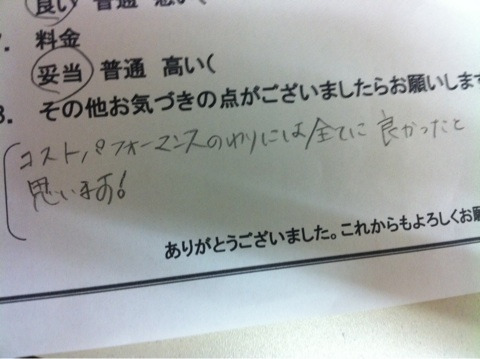 良い 普通 悪い(
7. 料金
妥当 普通 高い(
8. その他お気づきの点がございましたらお願いします
コストパフォーマンスのわりには全てに良かったと
思います!
ありがとうございました。これからもよろしくお願